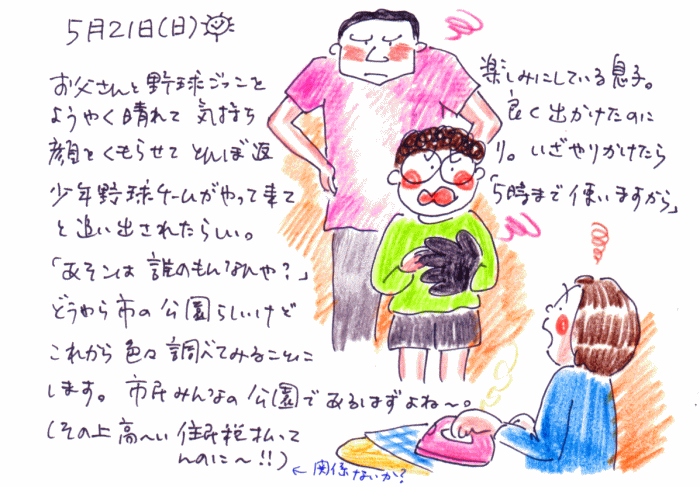 5月21日(日)
お父さんと野球ごっこを楽しみにしている息子。
ようやく晴れて気持ち良く出かけたのに
顔をくもらせてとんぼ返り。いざやりかけたら
少年野球チームがやって来て「5時まで使いますから」
と追い出されたらしい。
「あそこは誰のもんなんや?」
どうやら市の公園らしいけど
これから色々調べてみることに
します。市民みんなの公園であるはずよね〜。
(その上高〜い住民税払って
んのに〜!!)
←関係ないか?